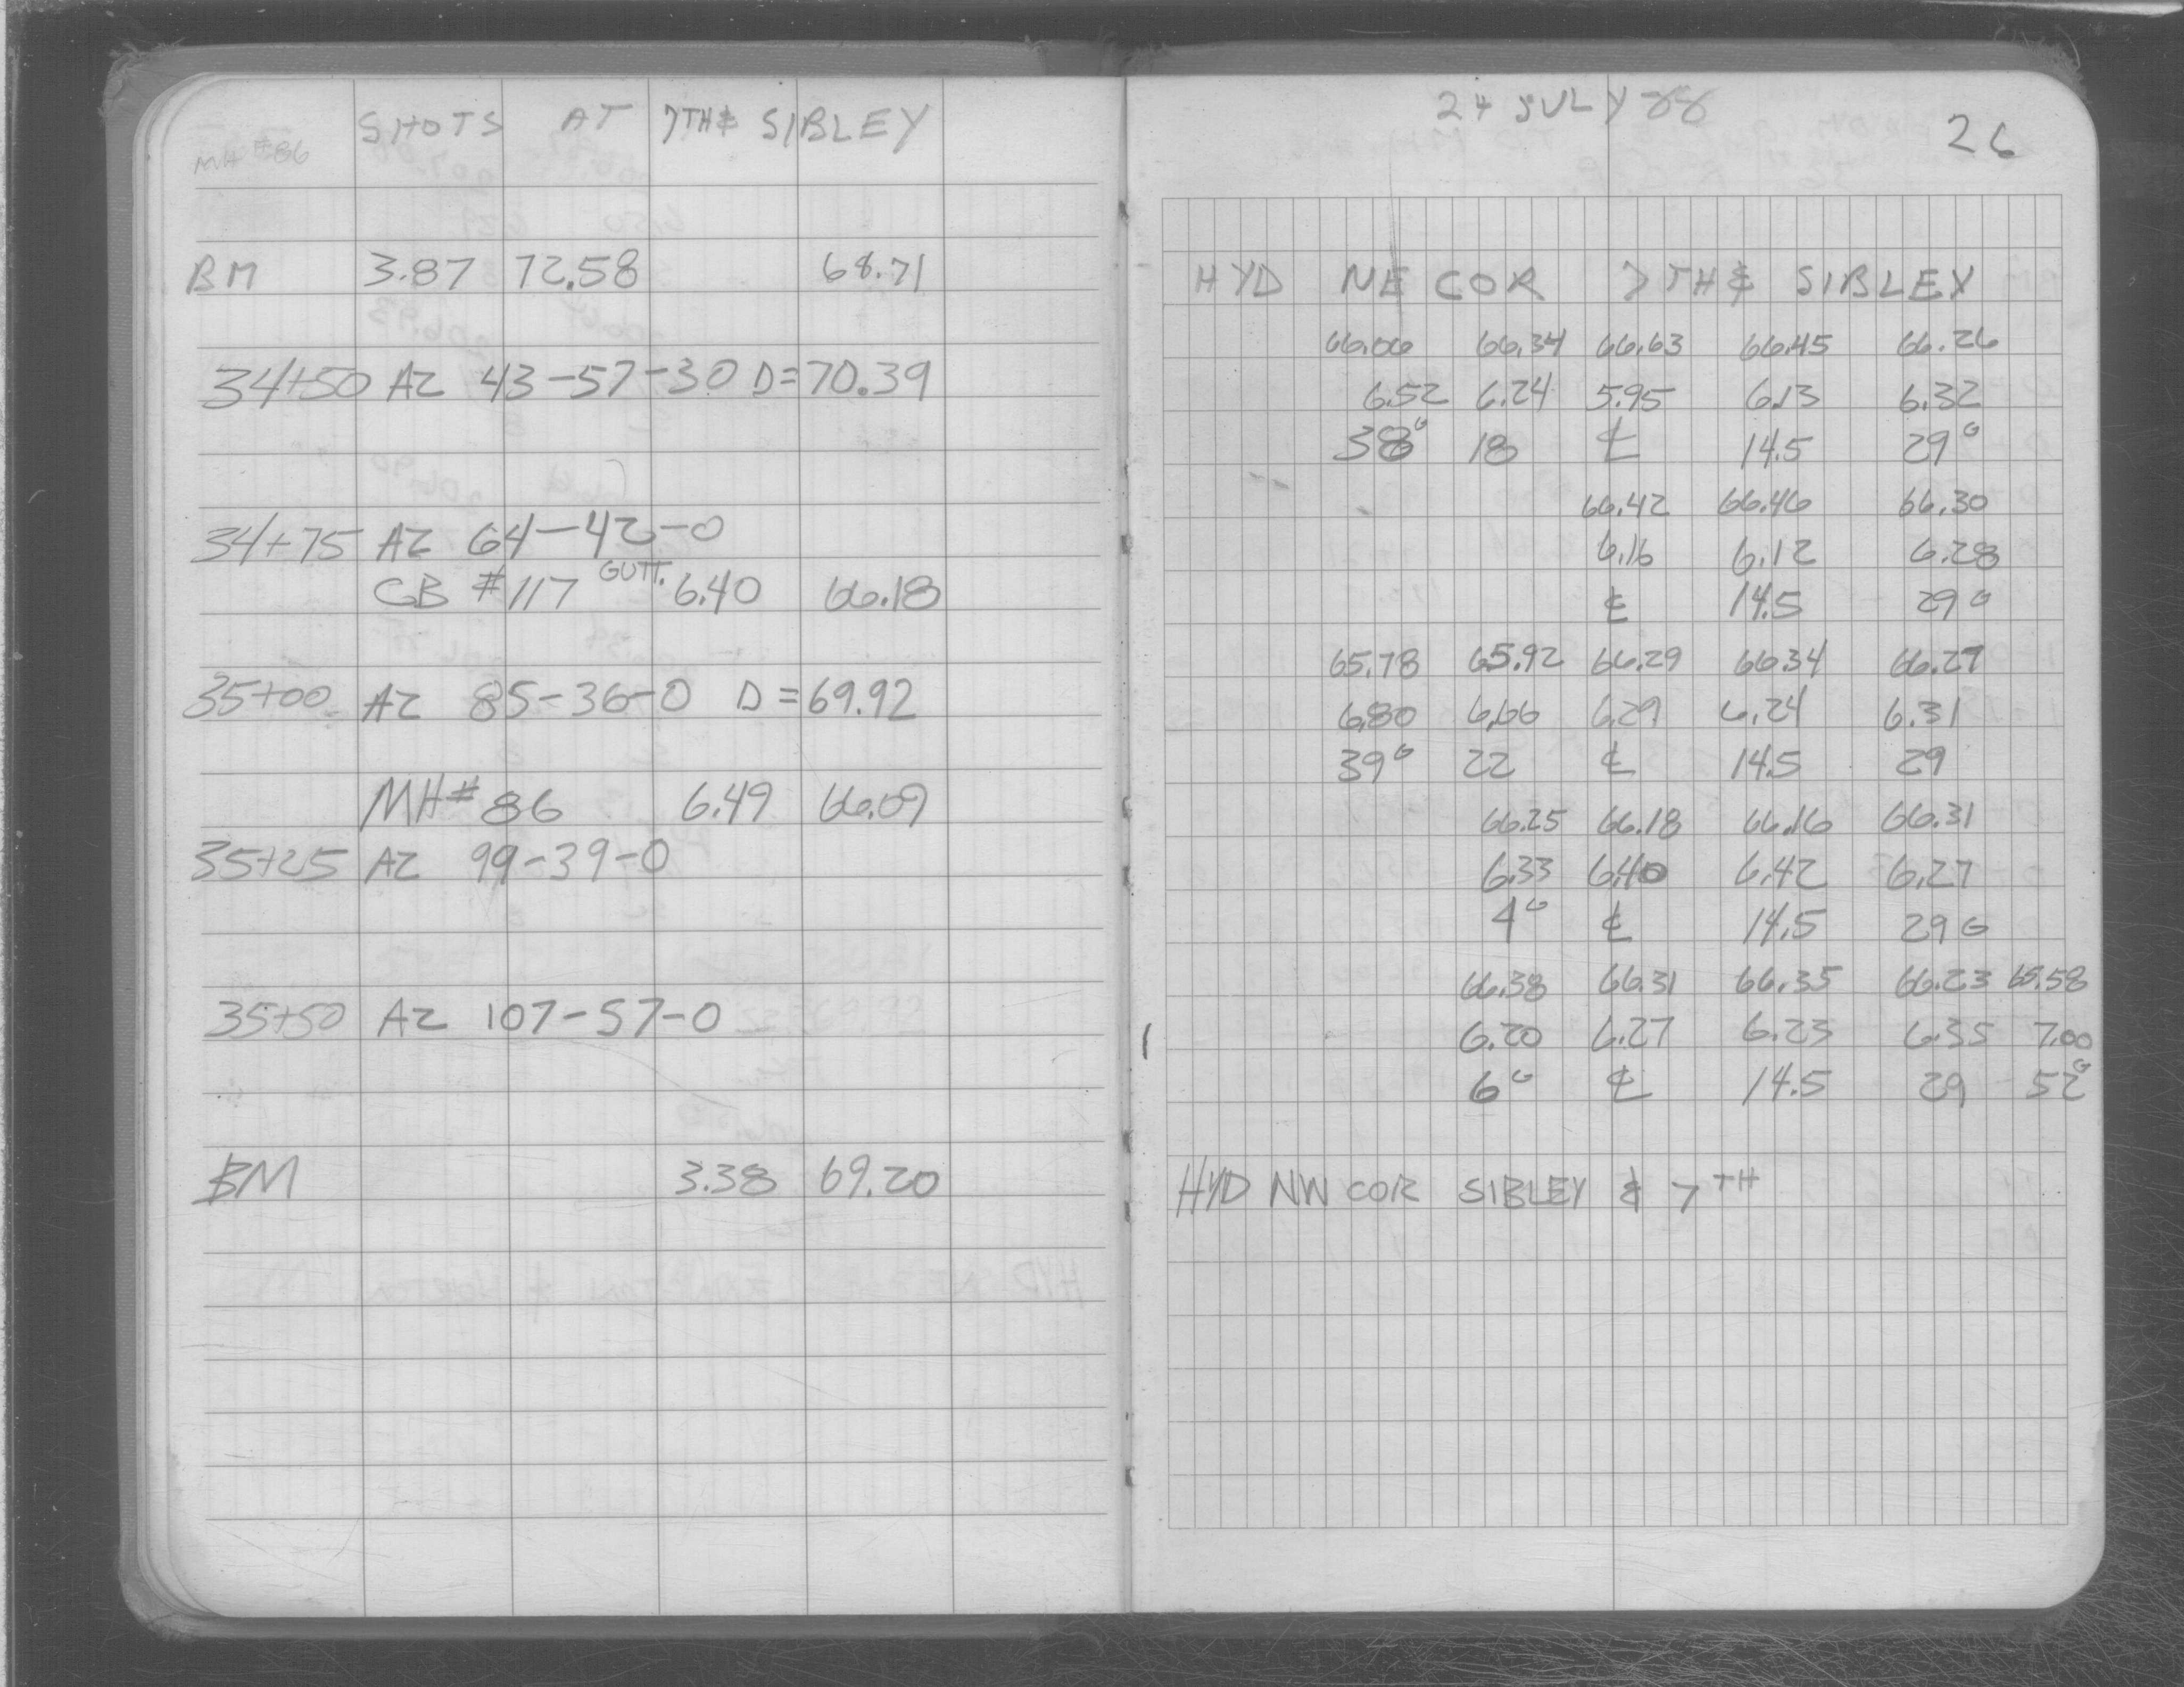 SHOTS AT 7TH & SIBLEY
MH #86
BM 3.87 72.58 68.71
34+50 AZ 43-57-30 D=70.39
34+75 AZ 64-42-0
CB #117 GUTT. 6.40 66.18
35+00 AZ 85-36-0 D=69.92
MH# 86 6.49 66.09
35+25 AZ 99-39-0
35+50 AZ 107-57-0
BM 3.38 69.20
24 JULY 88
26
HYD NE COR 7TH & SIBLEY
66.06 66.34 66.63 66.45 66.26
6.52 6.24 5.95 6.13 6.32
38G 18 ℄ 14.5 29G
66.42 66.46 66.30
6.16 6.12 6.28
℄ 14.5 29G
65.78 65.92 66.29 66.34 66.27
6.80 6.66 6.29 6.24 6.31
39G 22 ℄ 14.5 29
66.25 66.18 66.16 66.31
6.33 6.40 6.42 6.27
4G ℄ 14.5 29G
66.38 66.31 66.35 66.23 65.58
6.20 6.27 6.23 6.35 7.00
6G ℄ 14.5 29 52G
HYD NW COR SIBLEY & 7TH